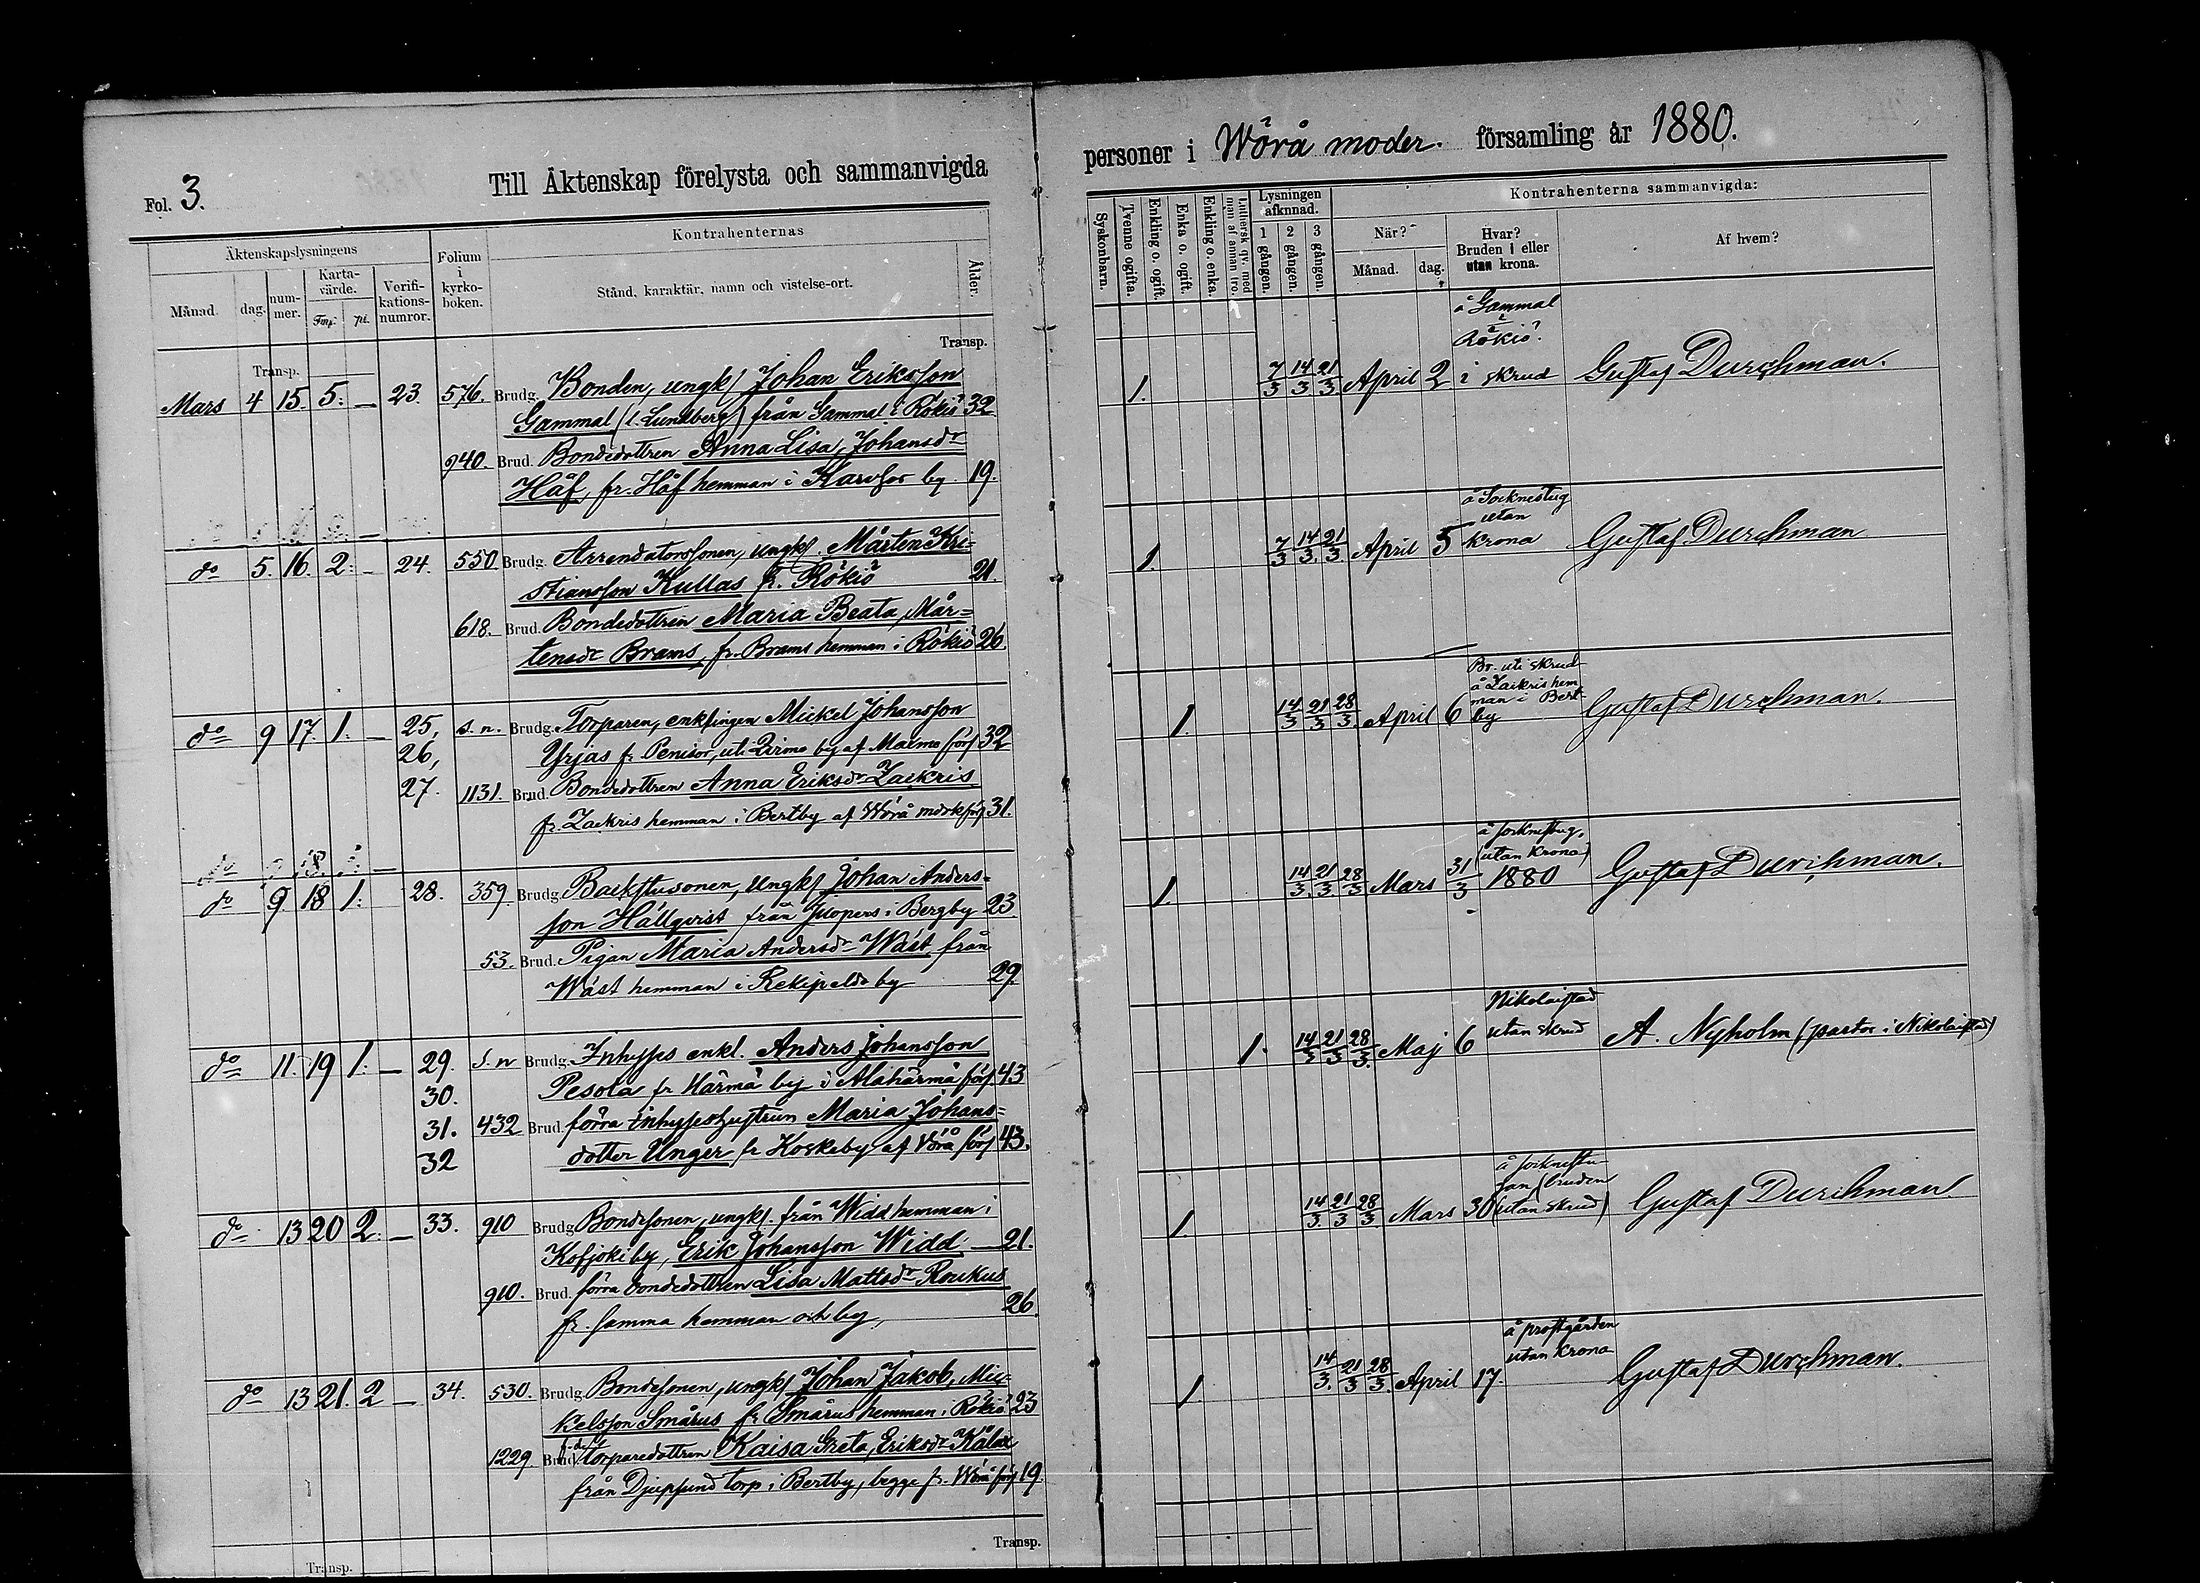 Fol. 3.
Till Äktenskap förelysta och sammanvigda
personer i Wörå moder. församling år 1880.
Äktenskapslysningens
Månad. dag. num-mer. Karta-värde. Fmk: pi. Verifi-kations-numror.
Folium i kyrko-boken.
Kontrahenternas
Stånd, karaktär, namn och vistelse-ort.
Ålder.
Syskonbarn.
Tvenne ogifta.
Enkling o. ogift.
Enka o. ogift.
Enkling o. enka.
Luthersk qv. med man af annan tro.
Lysningen afknnad.
1 gången. 2 gången. 3 gången.
Kontrahenterna sammanvigda:
När?
Månad. dag.
Hvar?
Bruden i eller
utan krona.
Af hvem?
Transp.
Transp.
Mars 4 15. 5. — 23. 576. Brudg. Bonden, ungk/ Johan Eriksson
Gammal (l. Lundberg) från Gammal i Rökiö 32
940. Brud. Bondedottren Anna Lisa, Johansdr
Håf, fr. Håf hemman i Karfsor by. 19.
1. 7/3 14/3 21/3. April 2
å Gammal
i Rökiö.
i skrud
Gustaf Durchman.
do 5. 16. 2. — 24. 550. Brudg. Arrendatorssonen, ungk/. Mårten Kri-
stiansson Kullas fr. Rökiö 21.
618. Brud. Bondedottren Maria Beata, Mår=
tensdr Brams, fr. Brams hemman i Rökiö 26.
1. 7/3 14/3. 21/3. April 5
å Socknestug
utan
krona
Gustaf Durchman
do 9 17. 1. — 25, s. n. Brudg. Torparen, enklingen Mickel Johansson
26, Yrjas fr Penisor, uti Qvimo by af Maxmo förs 32
27. 1131. Brud. Bondedottren Anna Eriksdr Zackris
fr. Zackris hemman i Bertby af Wörå mdrk förs 31.
1. 14/3 21/3 28/3. April 6
Br. uti skrud
å Zackris hem
man i Bert
by
Gustaf Durchman.
do 9. 18 1. 28. 359. Brudg. Backstusonen, ungk/ Johan Anders=
son Hällqvist från Jucopers i Bergby 23
53. Brud. Pigan Maria Andersdr Wäst från
Wäst hemman i Rekipeldo by 29.
1. 14/3. 21/3. 28/3 Mars 31/3
å socknestug.
(utan krona)
1880
Gustaf Durchman.
do 11. 19 1. — 29. s. n Brudg. Inhyses enkl. Anders Johansson
30. Pesola fr Härmä by i Alahärmä förs 43
31. 432 Brud. förra Inhyseshustrun Maria Johans=
32 dotter Unger fr Koskeby af Vörå förs 43.
1. 14/3 21/3 28/3. Maj 6
Nikolaistad
utan skrud
A. Nyholm (pastor i Nikolaistad)
do 13 20 2. — 33. 910 Brudg. Bondesonen, ungk/. från Widd hemman i
Kofjoki by, Erik Johansson Widd. — 21.
910. Brud. förra bondedottren Lisa Mattsdr Roukus
fr. samma hemman och by, 26
1. 14/3. 21/3. 28/3. Mars 30
å socknestu-
fan (bruden
utan skrud)
Gustaf Durchman
do 13 21. 2 — 34. 530. Brudg. Bondesonen, ungk/ Johan Jakob, Mic-
kelsson Smårus fr Smårus hemman i Rökiö 23
1229. Brud. f.d. torparedottren Kaisa Greta, Eriksdr Kålax
från Djupsund torp i Bertby, begge fr. Wörå förs 19.
1. 14/3. 21/3 28/3. April 17.
å prostgården
utan krona
Gustaf Durchman.
Transp.
Transp.